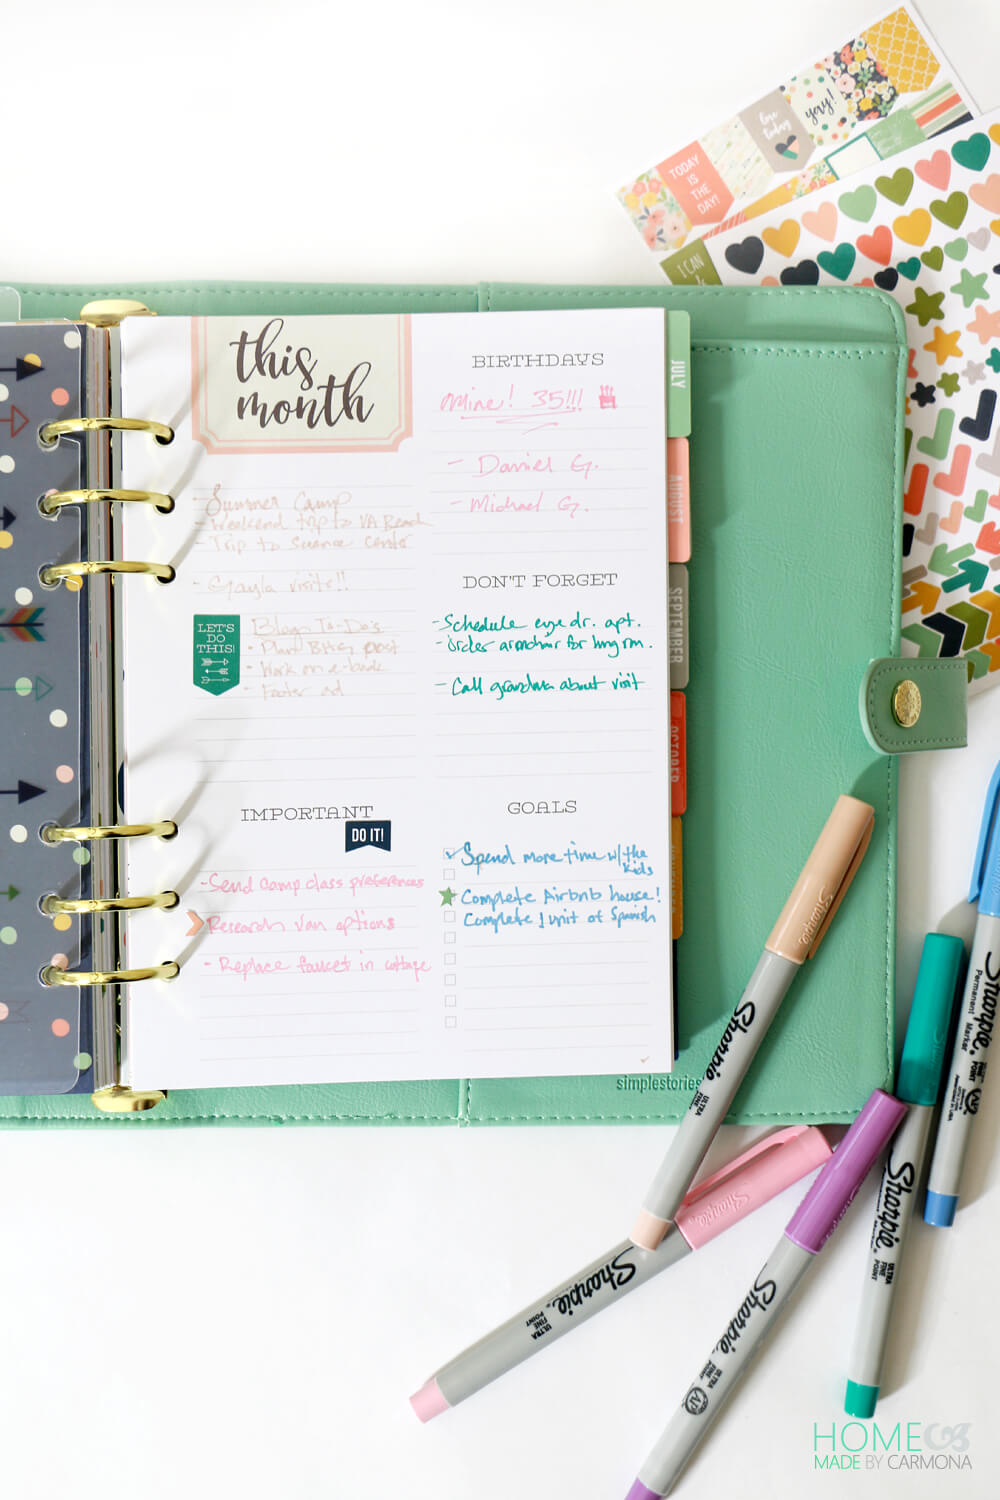 this
month
- Summer Camp
- Weekend trip to VA Beach
- Trip to science center
- Gayla visits!!
LET'S
DO
THIS!
Blog To-Do's
- Plan post
- Work on e-book
- Footer ad
IMPORTANT
DO IT!
- Send camp class preferences
Research van options
- Replace faucet in cottage
BIRTHDAYS
mine! 35!!!
- Daniel G.
- Michael G.
DON'T FORGET
- Schedule eye dr. apt.
- Order armchair for lvng rm.
- Call grandma about visit
GOALS
Spend more time w/ the
kids
Complete Airbnb house!
Complete 1 unit of Spanish
JULY
AUGUST
SEPTEMBER
OCTOBER
simplestories
TODAY
IS
THE
DAY!
love
today
yay!
I CAN
Sharpie
ULTRA
FINE
POINT
Sharpie
ULTRA
FINE
POINT
Sharpie
ULTRA
FINE
POINT
AP
Sharpie
ULTRA
FINE
POINT
Sharpie
Permanent
Marker
HOME
MADE BY CARMONA